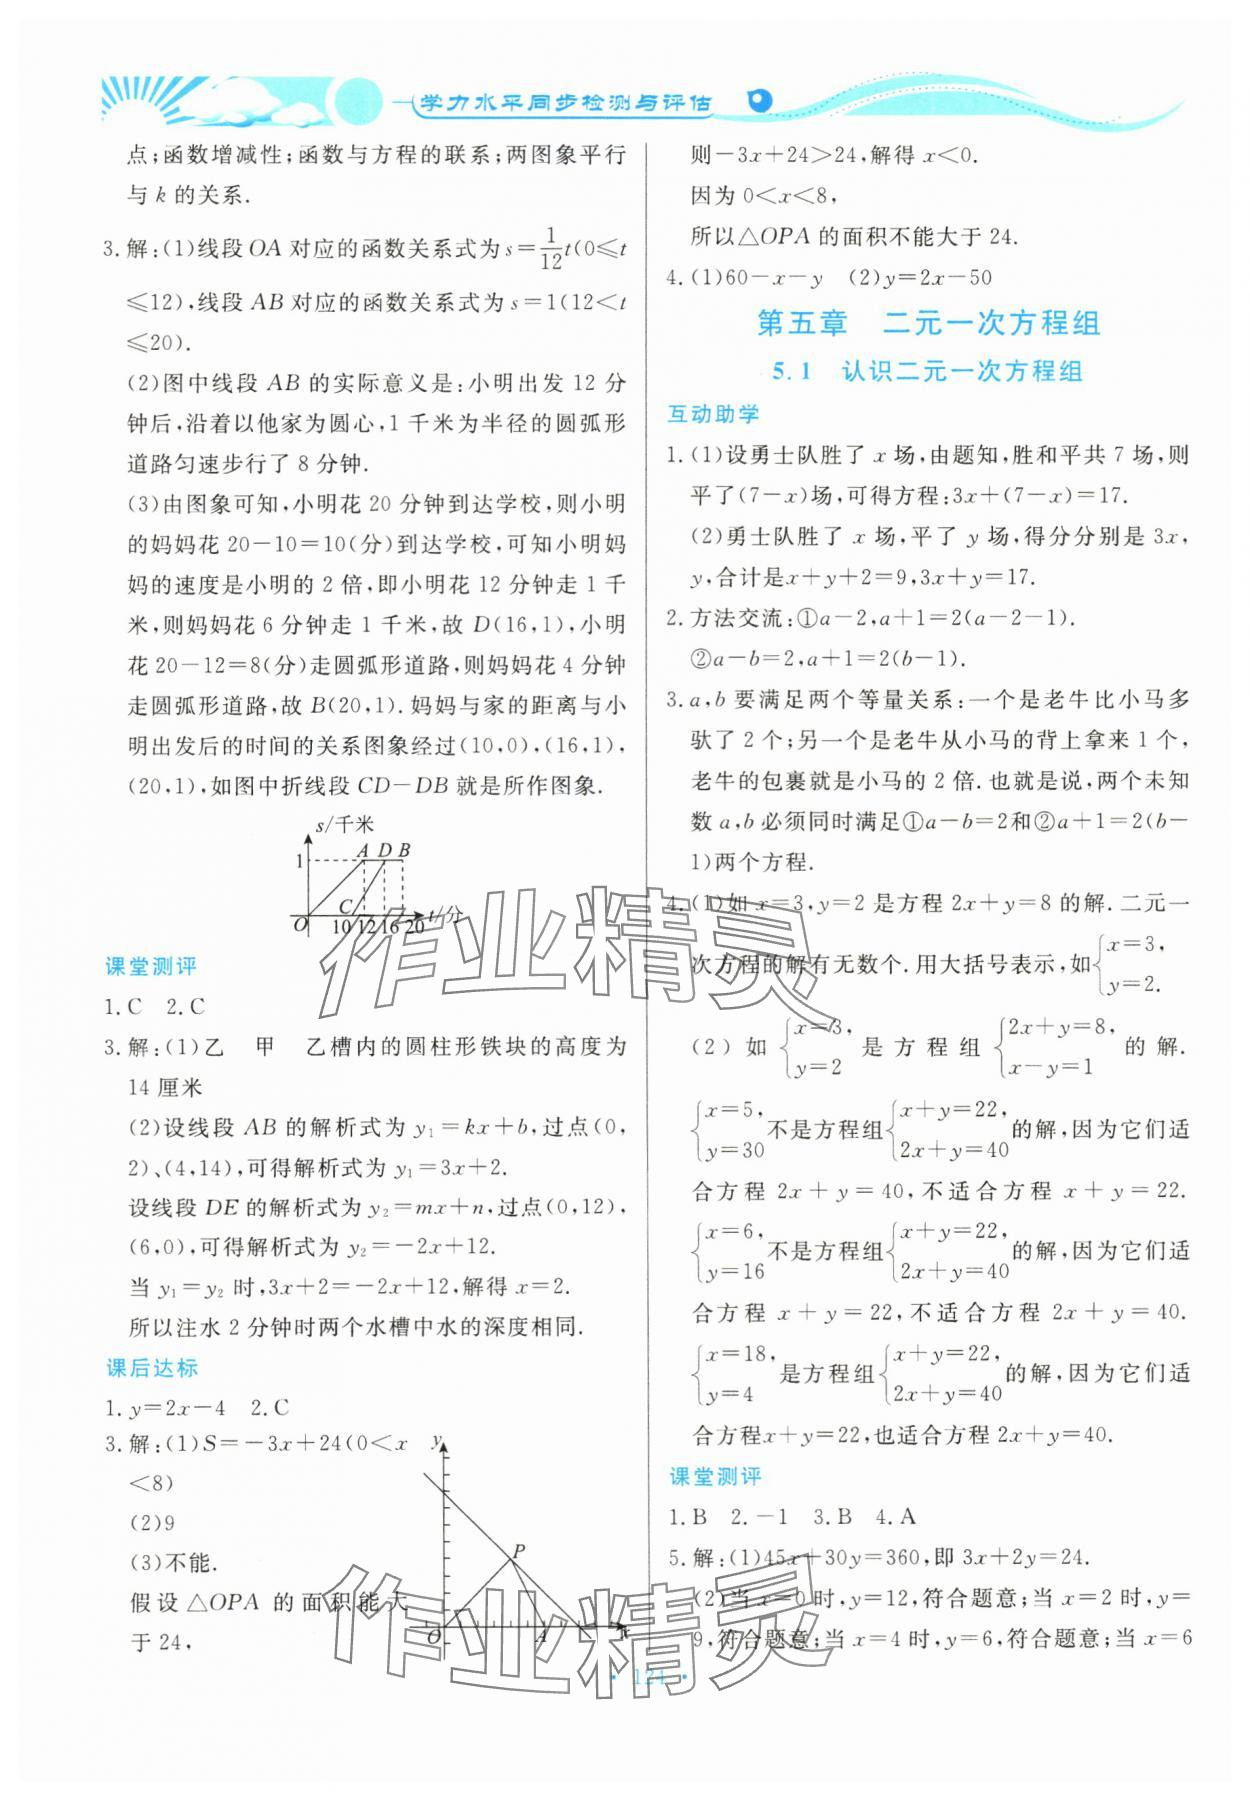 学力水平同步检测与评估
点;函数增减性;函数与方程的联系;两图象平行
与 k 的关系.
3.解:(1)线段 OA 对应的函数关系式为 s=1/12 t(0≤t
≤12),线段 AB 对应的函数关系式为 s=1(12<t
≤20).
(2)图中线段 AB 的实际意义是:小明出发 12 分
钟后,沿着以他家为圆心,1 千米为半径的圆弧形
道路匀速步行了 8 分钟.
(3)由图象可知,小明花 20 分钟到达学校,则小明
的妈妈花 20-10=10(分)到达学校,可知小明妈
妈的速度是小明的 2 倍,即小明花 12 分钟走 1 千
米,则妈妈花 6 分钟走 1 千米,故 D(16,1),小明
花 20-12=8(分)走圆弧形道路,则妈妈花 4 分钟
走圆弧形道路,故 B(20,1).妈妈与家的距离与小
明出发后的时间的关系图象经过(10,0),(16,1),
(20,1),如图中折线段 CD-DB 就是所作图象.
s/千米
1 A D B
O C 10 12 16 20 t/分
课堂测评
1.C 2.C
3.解:(1)乙 甲 乙槽内的圆柱形铁块的高度为
14 厘米
(2)设线段 AB 的解析式为 y₁=kx+b,过点(0,
2)、(4,14),可得解析式为 y₁=3x+2.
设线段 DE 的解析式为 y₂=mx+n,过点(0,12),
(6,0),可得解析式为 y₂=-2x+12.
当 y₁=y₂ 时,3x+2=-2x+12,解得 x=2.
所以注水 2 分钟时两个水槽中水的深度相同.
课后达标
1.y=2x-4 2.C
3.解:(1)S=-3x+24(0<x
<8)
(2)9
(3)不能.
假设△OPA 的面积能大
于 24,
y
P
O A x
则-3x+24>24,解得 x<0.
因为 0<x<8,
所以△OPA 的面积不能大于 24.
4.(1)60-x-y (2)y=2x-50
第五章 二元一次方程组
5.1 认识二元一次方程组
互动助学
1.(1)设勇士队胜了 x 场,由题知,胜和平共 7 场,则
平了(7-x)场,可得方程:3x+(7-x)=17.
(2)勇士队胜了 x 场,平了 y 场,得分分别是 3x,
y,合计是x+y+2=9,3x+y=17.
2.方法交流:①a-2,a+1=2(a-2-1).
②a-b=2,a+1=2(b-1).
3.a,b 要满足两个等量关系:一个是老牛比小马多
驮了 2 个;另一个是老牛从小马的背上拿来 1 个,
老牛的包裹就是小马的 2 倍.也就是说,两个未知
数 a,b 必须同时满足①a-b=2和②a+1=2(b-
1)两个方程.
4.(1)如 x=3,y=2 是方程 2x+y=8 的解.二元一
次方程的解有无数个.用大括号表示,如{x=3, y=2.
(2)如{x=3, y=2 是方程组{2x+y=8, x-y=1 的解.
{x=5, y=30 不是方程组{x+y=22, 2x+y=40 的解,因为它们适
合方程 2x+y=40,不适合方程 x+y=22.
{x=6, y=16 不是方程组{x+y=22, 2x+y=40 的解,因为它们适
合方程 x+y=22,不适合方程 2x+y=40.
{x=18, y=4 是方程组{x+y=22, 2x+y=40 的解,因为它们适
合方程x+y=22,也适合方程 2x+y=40.
课堂测评
1.B 2.-1 3.B 4.A
5.解:(1)45x+30y=360,即 3x+2y=24.
(2)当 x=0 时,y=12,符合题意;当 x=2 时,y=
9,符合题意;当 x=4 时,y=6,符合题意;当 x=6
· 124 ·
作业精灵
作业精灵